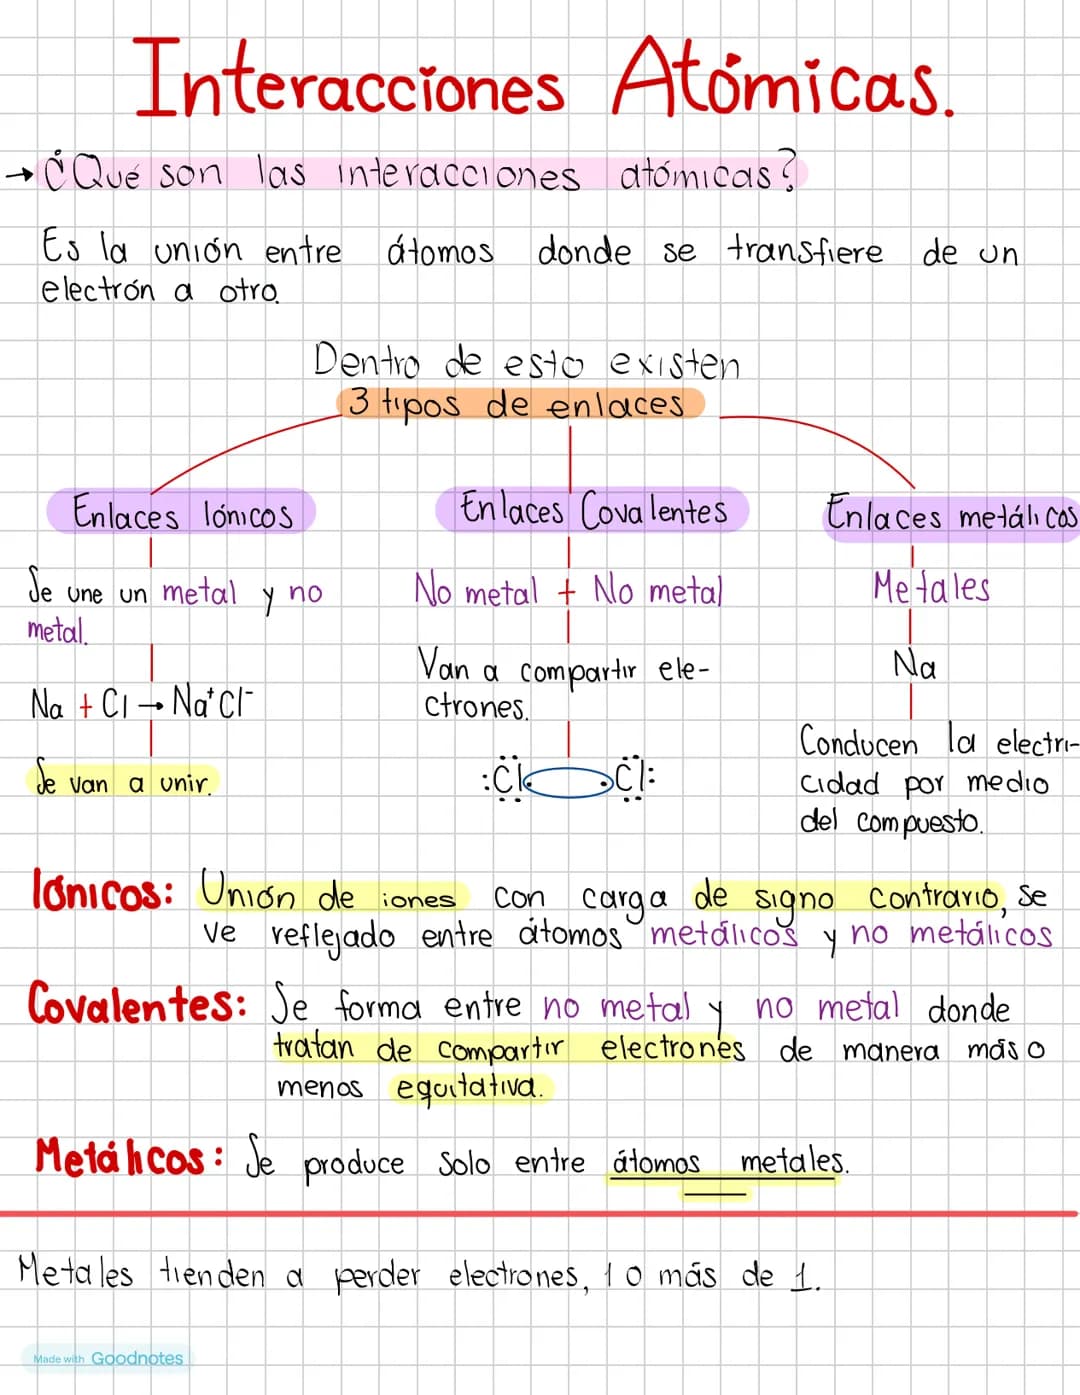 Interacciones Atómicas.
→ ¿Qué son las interacciones atómicas?
Es la unión entre átomos donde se transfiere de un
electrón a otro.
Dentro de esto existen
3 tipos de enlaces
Enlaces Iónicos
Enlaces Covalentes
Enlaces metálicos
Se une un metal y no
metal.
Na + Cl → Na⁺Cl⁻
Se van a unir.
No metal + No metal
Van a compartir ele-
ctrones.
:Cl. .Cl:
Metales
Na
Conducen la electri-
cidad por medio
del compuesto.
Iónicos: Unión de iones con carga de signo contrario, se
ve reflejado entre átomos metálicos y no metálicos
Covalentes: Se forma entre no metal y no metal donde
tratan de compartir electrones de manera más o
menos equitativa.
Metálicos: Se produce solo entre átomos metales.
Metales tienden a perder electrones, 1 o más de 1.
Made with Goodnotes